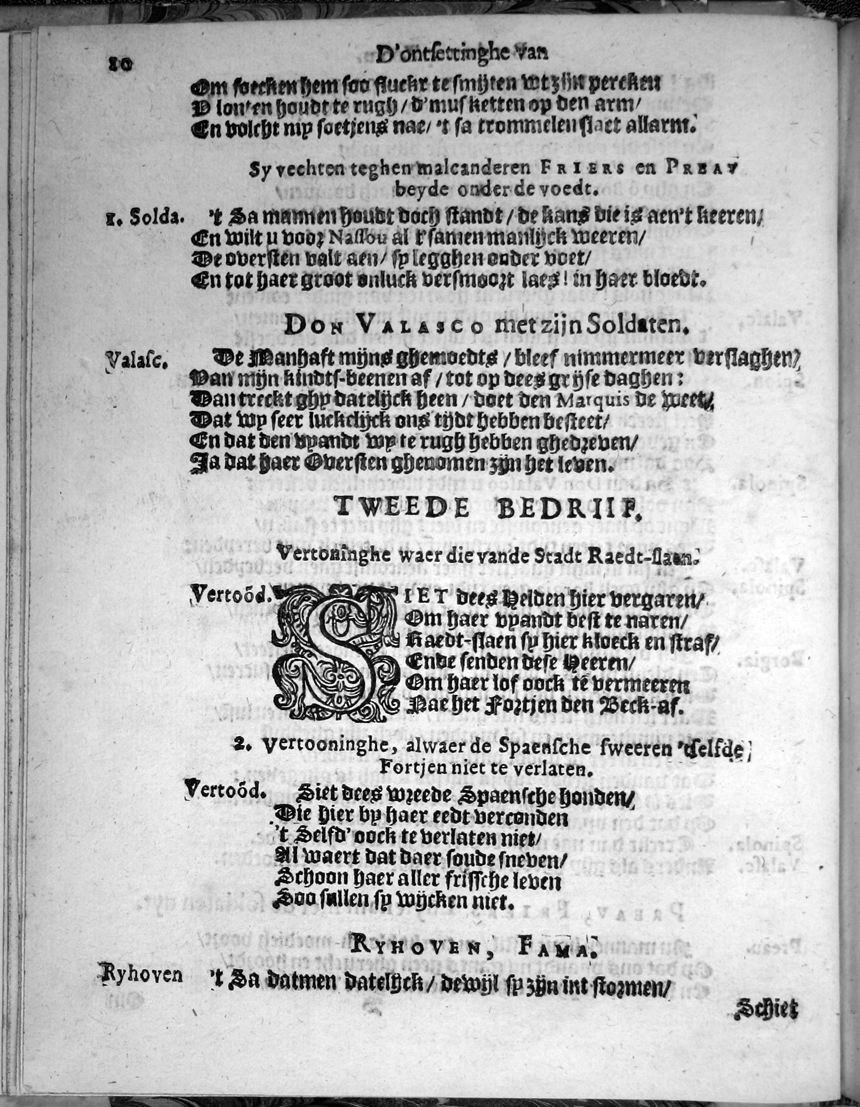 10
D'ontsettinghe van
Om soecken hem soo fluckr te smijten wt zijn percken
D lonten houdt te rugh / d'musketten op den arm /
En volcht my soetjens nae / 't sa trommelen slaet allarm.
Sy vechten teghen malcanderen FRIERS en PREAV
beyde onder de voedt.
1. Solda. 't Sa mannen houdt doch standt / de kans die is aen't keeren /
En wilt u voor Nassou al t'samen manlijck weeren /
De oversten valt aen / sy legghen onder voet /
En tot haer groot onluck versmoort laes! in haer bloedt.
DON VALASCO met zijn Soldaten.
Valasc. De Manhaft mijns ghemoedts / bleef nimmermeer verslaghen /
Van mijn kindts-beenen af / tot op dees grijse daghen:
Dan treckt ghy datelijck heen / doet den Marquis de weet /
Dat wy seer luckelijck ons tijdt hebben besteet /
En dat den vyandt wy te rugh hebben ghedreven /
Ja dat haer Oversten ghenomen zijn het leven.
TWEEDE BEDRIIF.
Vertoninghe waer die vande Stadt Raedt-slaan.
Vertoõd. SIET dees Helden hier vergaren /
Om haer vyandt best te naren /
Raedt-slaen sy hier kloeck en straf /
Ende senden dese Heeren /
Om haer lof oock te vermeeren
Nae het Fortjen den Beck-af.
2. Vertooninghe, alwaer de Spaensche sweeren 'tselfde
Fortjen niet te verlaten.
Vertoõd. Siet dees wreede Spaensche honden /
Die hier by haer eedt verconden
't Selfd' oock te verlaten niet /
Al waert dat daer soude sneven /
Schoon haer aller frissche leven
Soo sullen sy wijcken niet.
RYHOVEN, FAMA.
Ryhoven 't Sa datmen datelijck / dewijl sy zijn int stormen /
Schiet